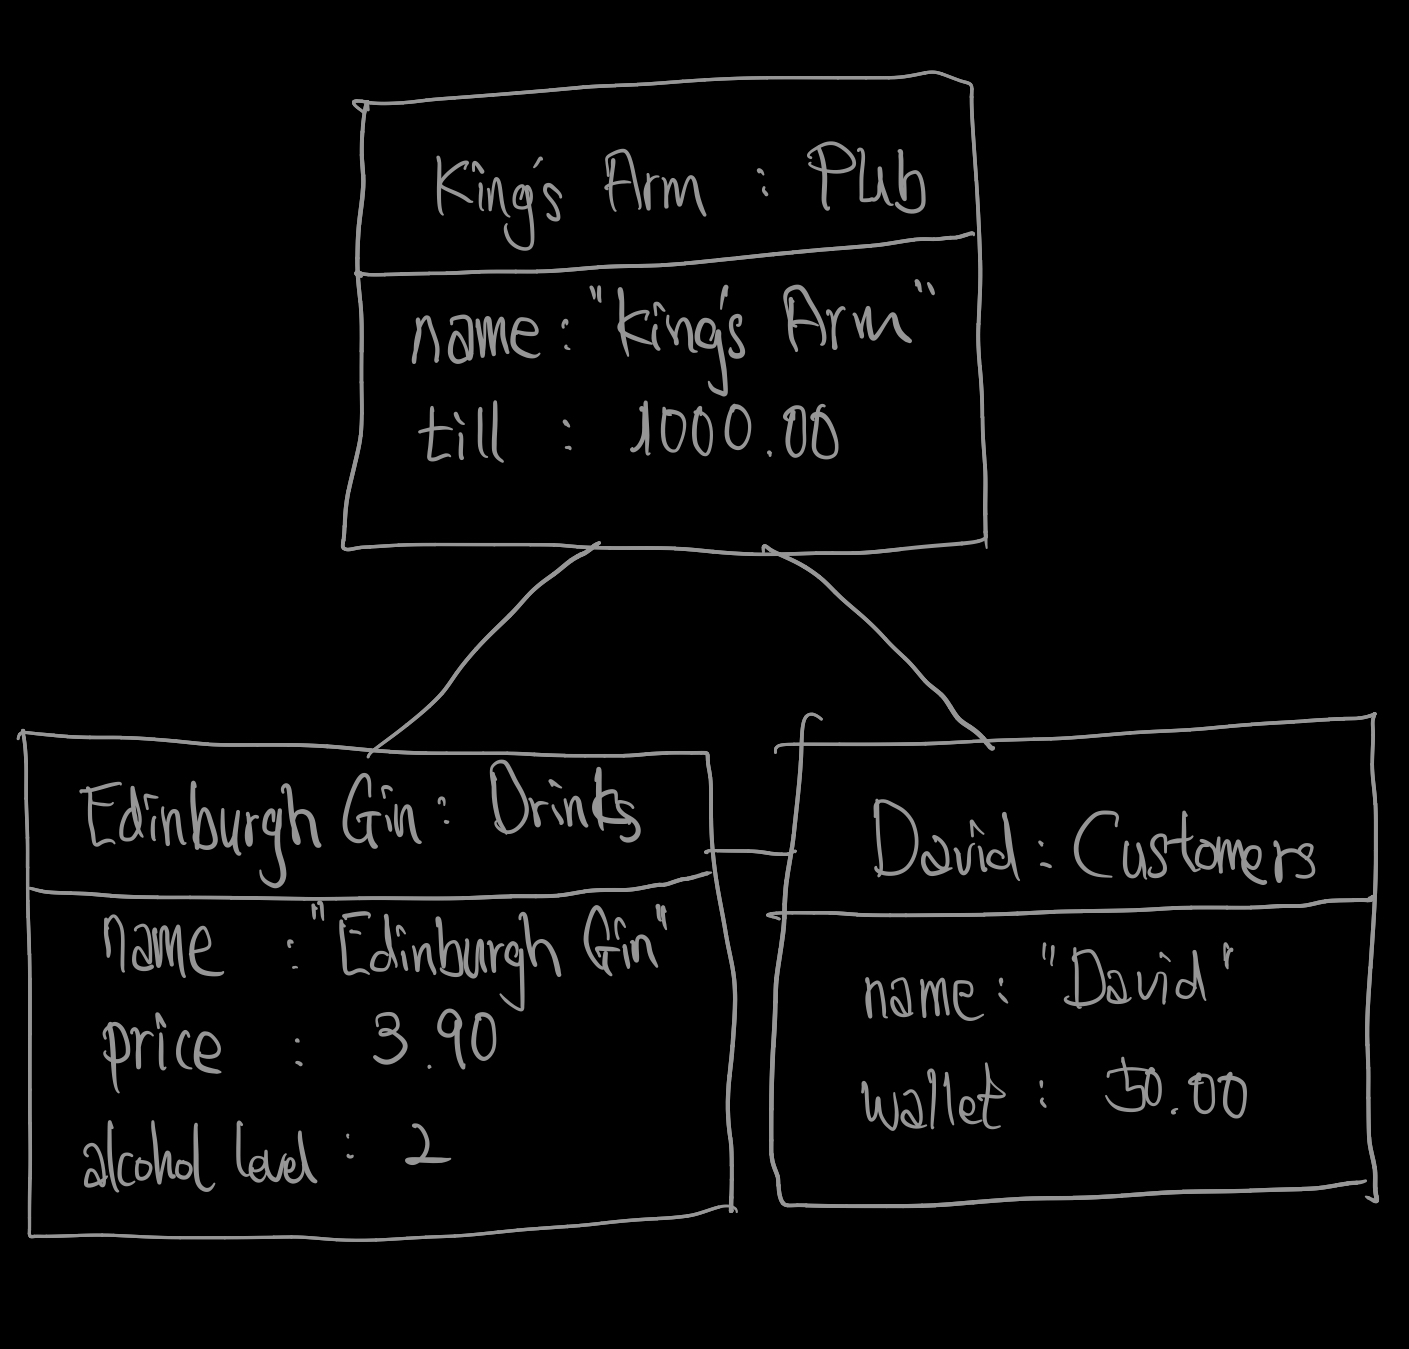 King's Arm : Pub
name : "King's Arm"
till : 1000.00
Edinburgh Gin : Drinks
name : "Edinburgh Gin"
price : 3.90
alcohol level : 2
David : Customers
name : "David"
wallet : 50.00